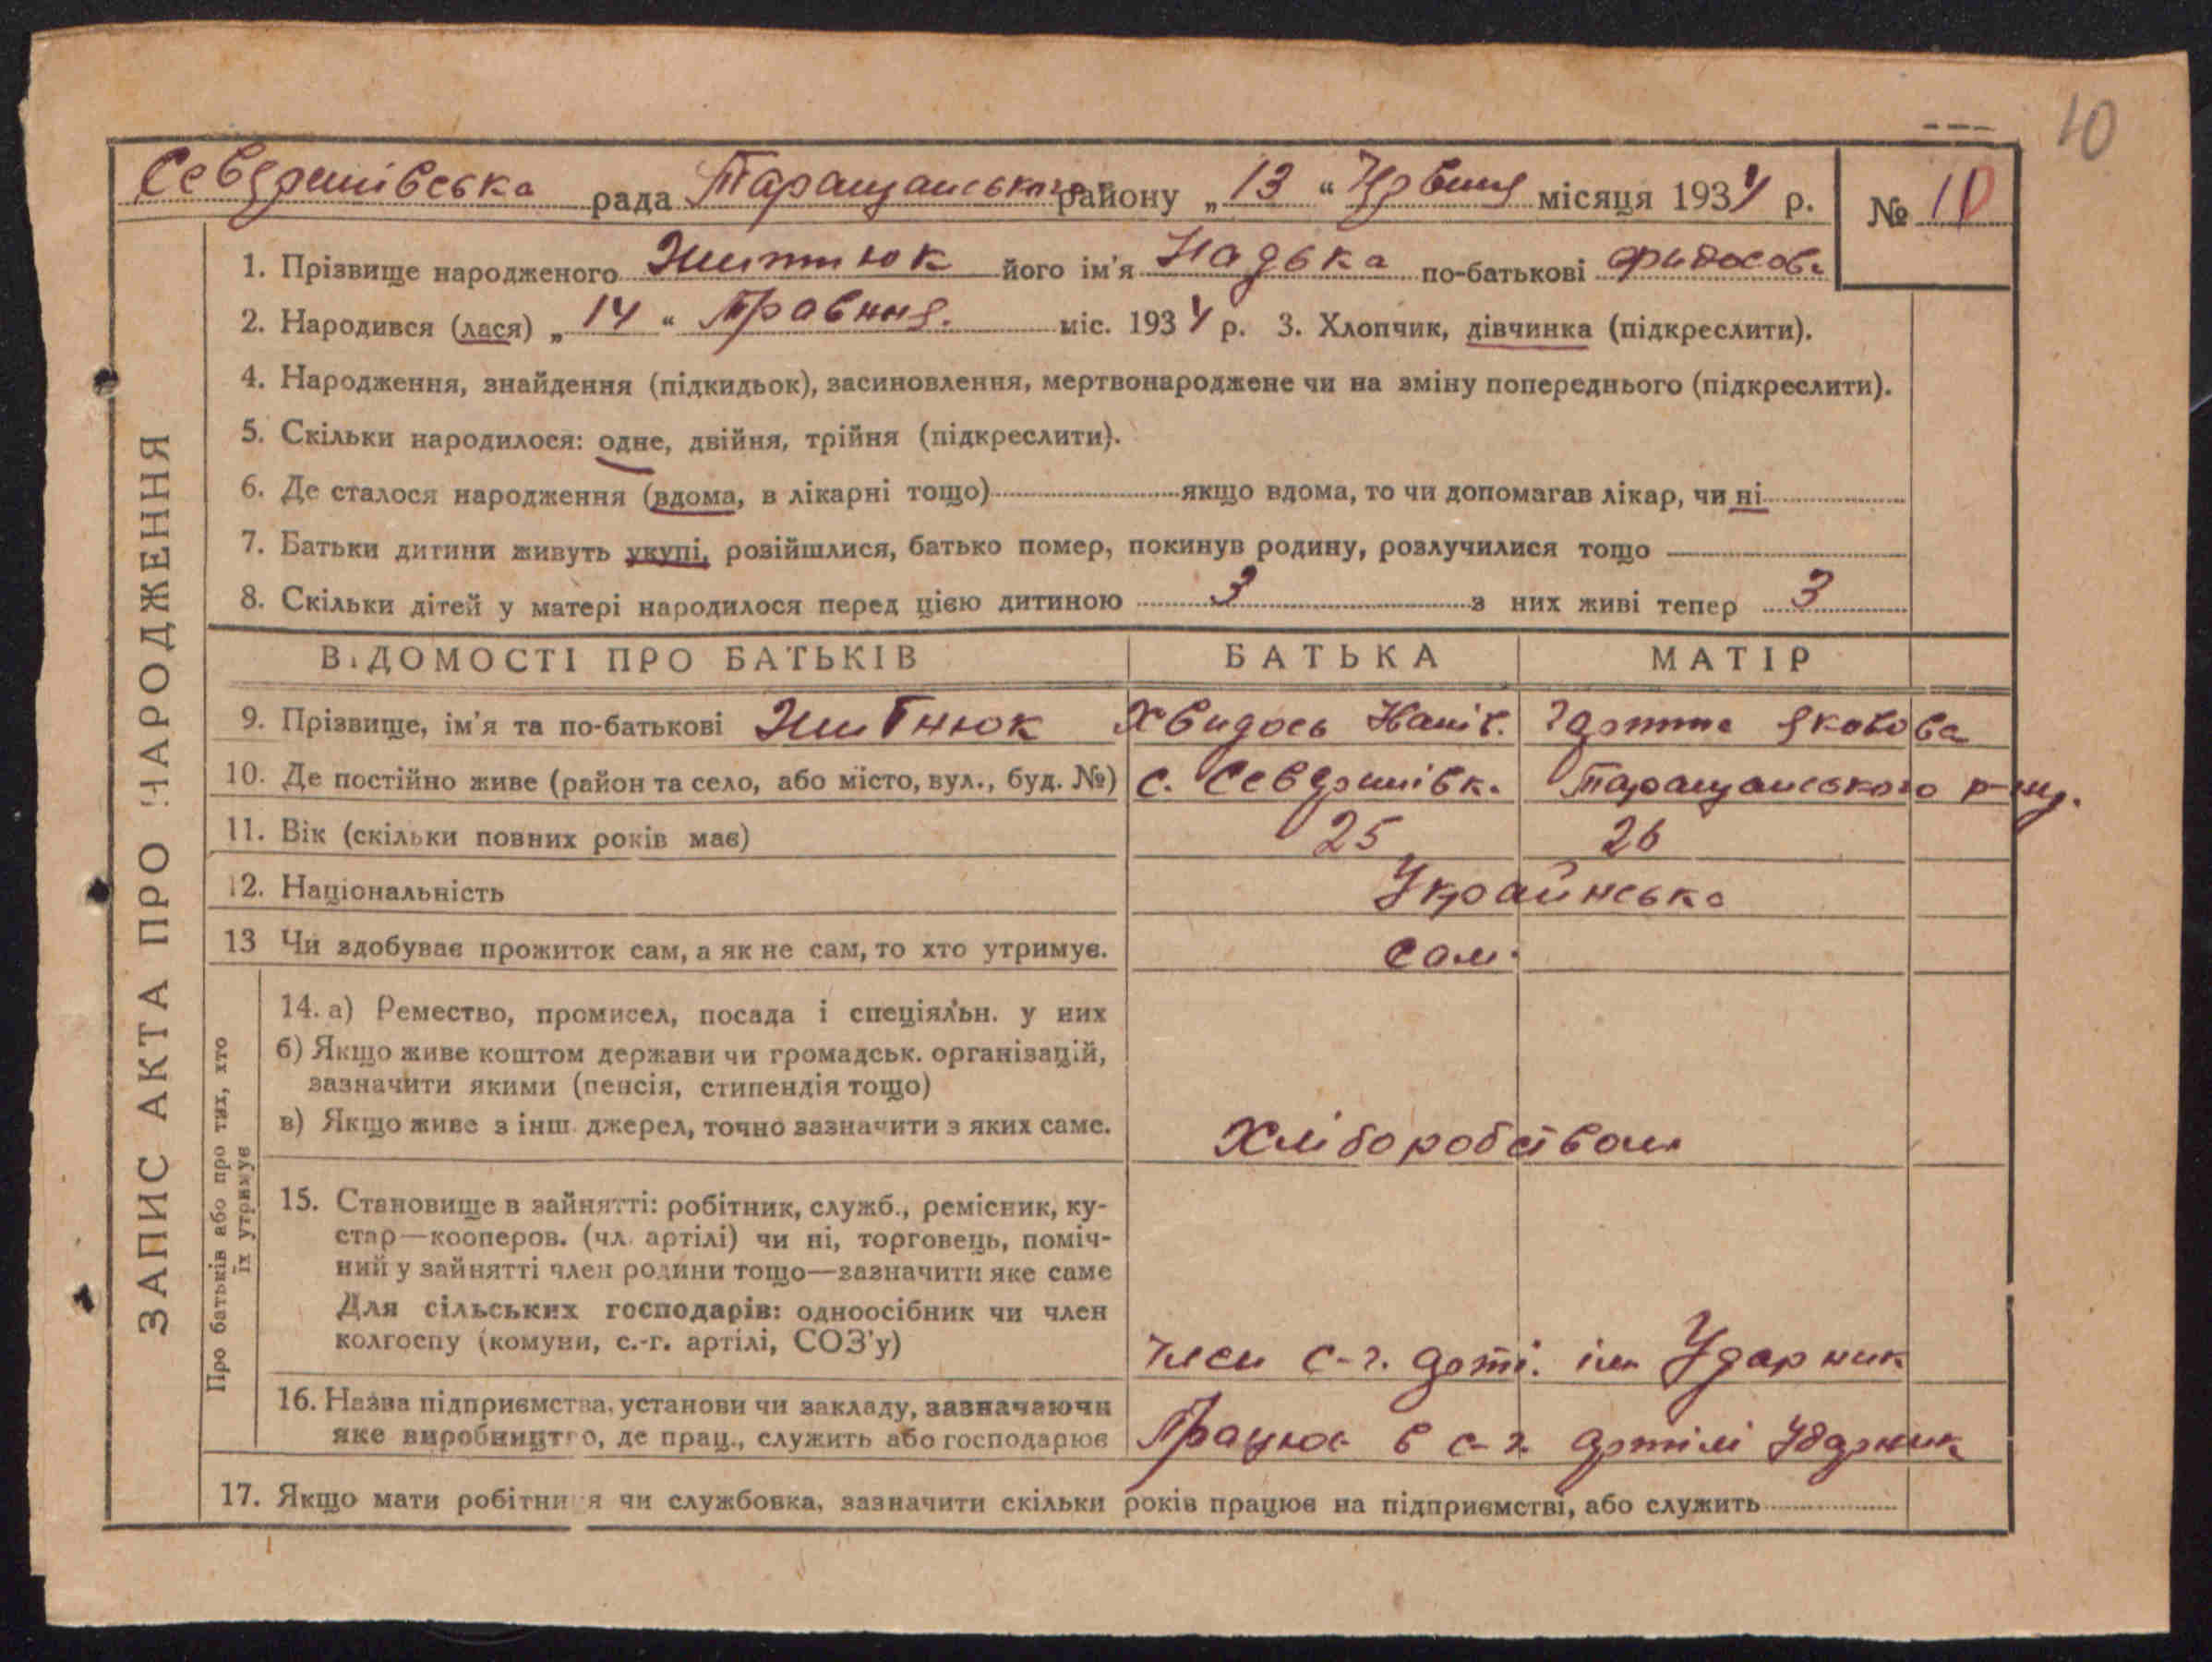 10
Северинівська рада Таращанського району „13“ Чрвния місяця 1934 р. № 10
1. Прізвище народженого Житнюк його ім'я Надька по-батькові Фидосов.
2. Народився (лася) „14“ Травння. міс. 1934 р. 3. Хлопчик, дівчинка (підкреслити).
4. Народження, знайдення (підкидьок), засиновлення, мертвонароджене чи на зміну попереднього (підкреслити).
5. Скільки народилося: одне, двійня, трійня (підкреслити).
6. Де сталося народження (вдома, в лікарні тощо) якщо вдома, то чи допомагав лікар, чи ні
7. Батьки дитини живуть укупі, розійшлися, батько помер, покинув родину, розлучилися тощо
8. Скільки дітей у матері народилося перед цією дитиною 3 з них живі тепер 3
ВІДОМОСТІ ПРО БАТЬКІВ БАТЬКА МАТІР
9. Прізвище, ім'я та по-батькові Житнюк Хвидось Яковова
10. Де постійно живе (район та село, або місто, вул., буд. №) с. Севериівк. Таращанського р-ну.
11. Вік (скільки повних років має) 25 26
12. Національність Украйнська
13 Чи здобуває прожиток сам, а як не сам, то хто утримує. Сам.
14. а) Ремество, промисел, посада і спеціяльн. у них
б) Якщо живе коштом держави чи громадськ. організацій,
зазначити якими (пенсія, стипендія тощо)
в) Якщо живе з інш. джерел, точно зазначити з яких саме. Хліборобством
15. Становище в зайнятті: робітник, служб., ремісник, ку-
стар—кооперов. (чл. артілі) чи ні, торговець, поміч-
ний у зайнятті член родини тощо—зазначити яке саме
Для сільських господарів: одноосібник чи член
колгоспу (комуни, с.-г. артілі, СОЗ'у) член с-г. арті. ім Ударник
16. Назва підприємства, установи чи закладу, зазначаючи
яке виробництво, де прац., служить або господарює Працює в с-г. артілі Ударник
17. Якщо мати робітниця чи службовка, зазначити скільки років працює на підприємстві, або служить
ЗАПИС АКТА ПРО НАРОДЖЕННЯ
Про батьків або про тих, хто
їх утримує